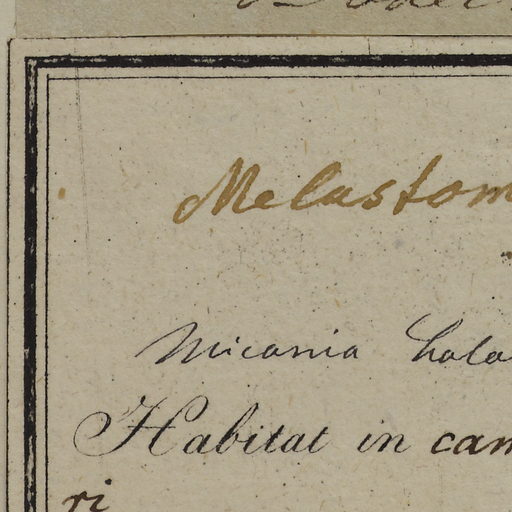 Melastom
Miconia holo
Habitat in cam
ri